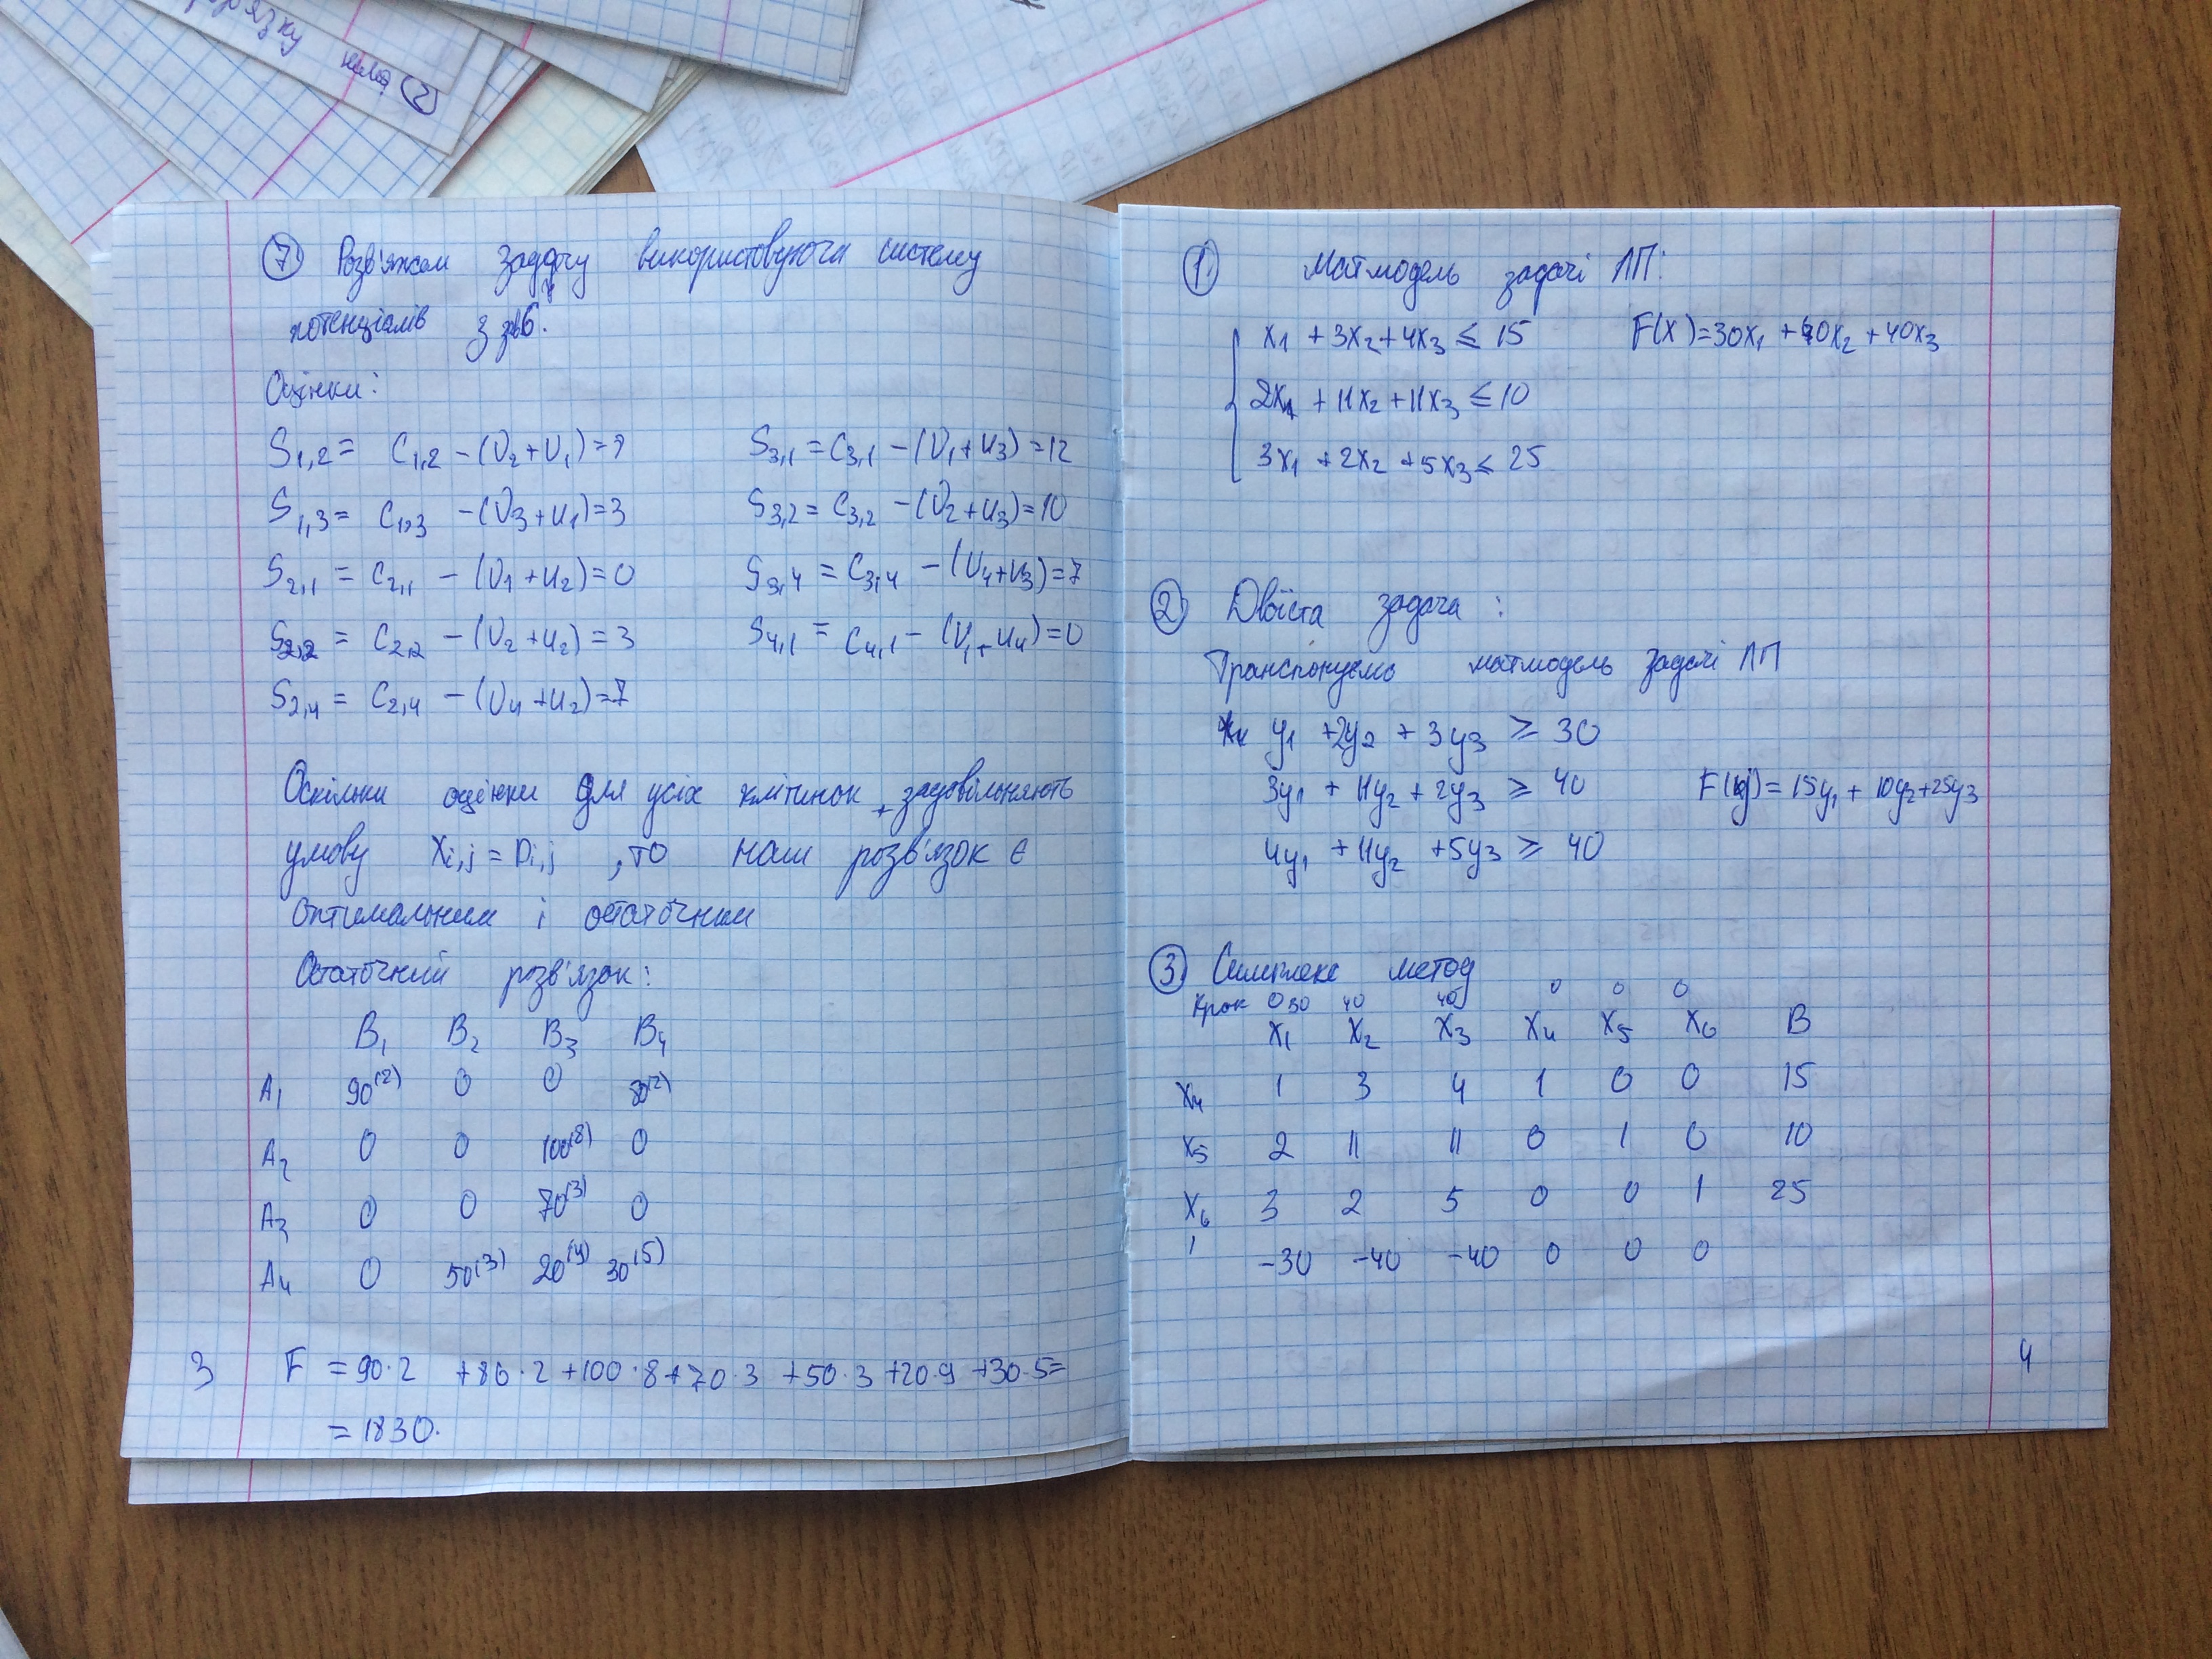 ② тип
⑦ Розв'яжем задачу використовуючи систему
потенціалів з зав6.
Оцінки:
S1,2 = C1,2 - (V2+U1)=7
S1,3 = C1,3 - (V3+U1)=3
S2,1 = C2,1 - (V1+U2)=0
S2,2 = C2,2 - (V2+U2)=3
S2,4 = C2,4 - (V4+U2)=7
S3,1 = C3,1 - (V1+U3)=12
S3,2 = C3,2 - (V2+U3)=10
S3,4 = C3,4 - (V4+U3)=7
S4,1 = C4,1 - (V1+U4)=0
Оскільки оцінки для усіх клітинок задовільняють
умову Xi,j = Di,j , то наш розв'язок є
оптимальним і остаточним
Остаточний розв'язок:
B1 B2 B3 B4
A1 90(2) 0 0 80(2)
A2 0 0 100(8) 0
A3 0 0 70(3) 0
A4 0 50(3) 20(9) 30(5)
F = 90·2 +80·2 +100·8 +70·3 +50·3 +20·9 +30·5=
= 1830.
3
① Матмодель задачі ЛП:
x1 + 3x2 + 4x3 ≤ 15 F(x)=30x1 + 40x2 + 40x3
2x1 + 11x2 + 11x3 ≤ 10
3x1 + 2x2 + 5x3 ≤ 25
② Двоїста задача:
Транспонуємо матмодель задачі ЛП
y1 + 2y2 + 3y3 ≥ 30
3y1 + 11y2 + 2y3 ≥ 40 F(y) = 15y1 + 10y2 + 25y3
4y1 + 11y2 + 5y3 ≥ 40
③ Симплекс метод
Крок 0 30 40 40 0 0 0
X1 X2 X3 X4 X5 X6 B
X4 1 3 4 1 0 0 15
X5 2 11 11 0 1 0 10
X6 3 2 5 0 0 1 25
1 -30 -40 -40 0 0 0
4